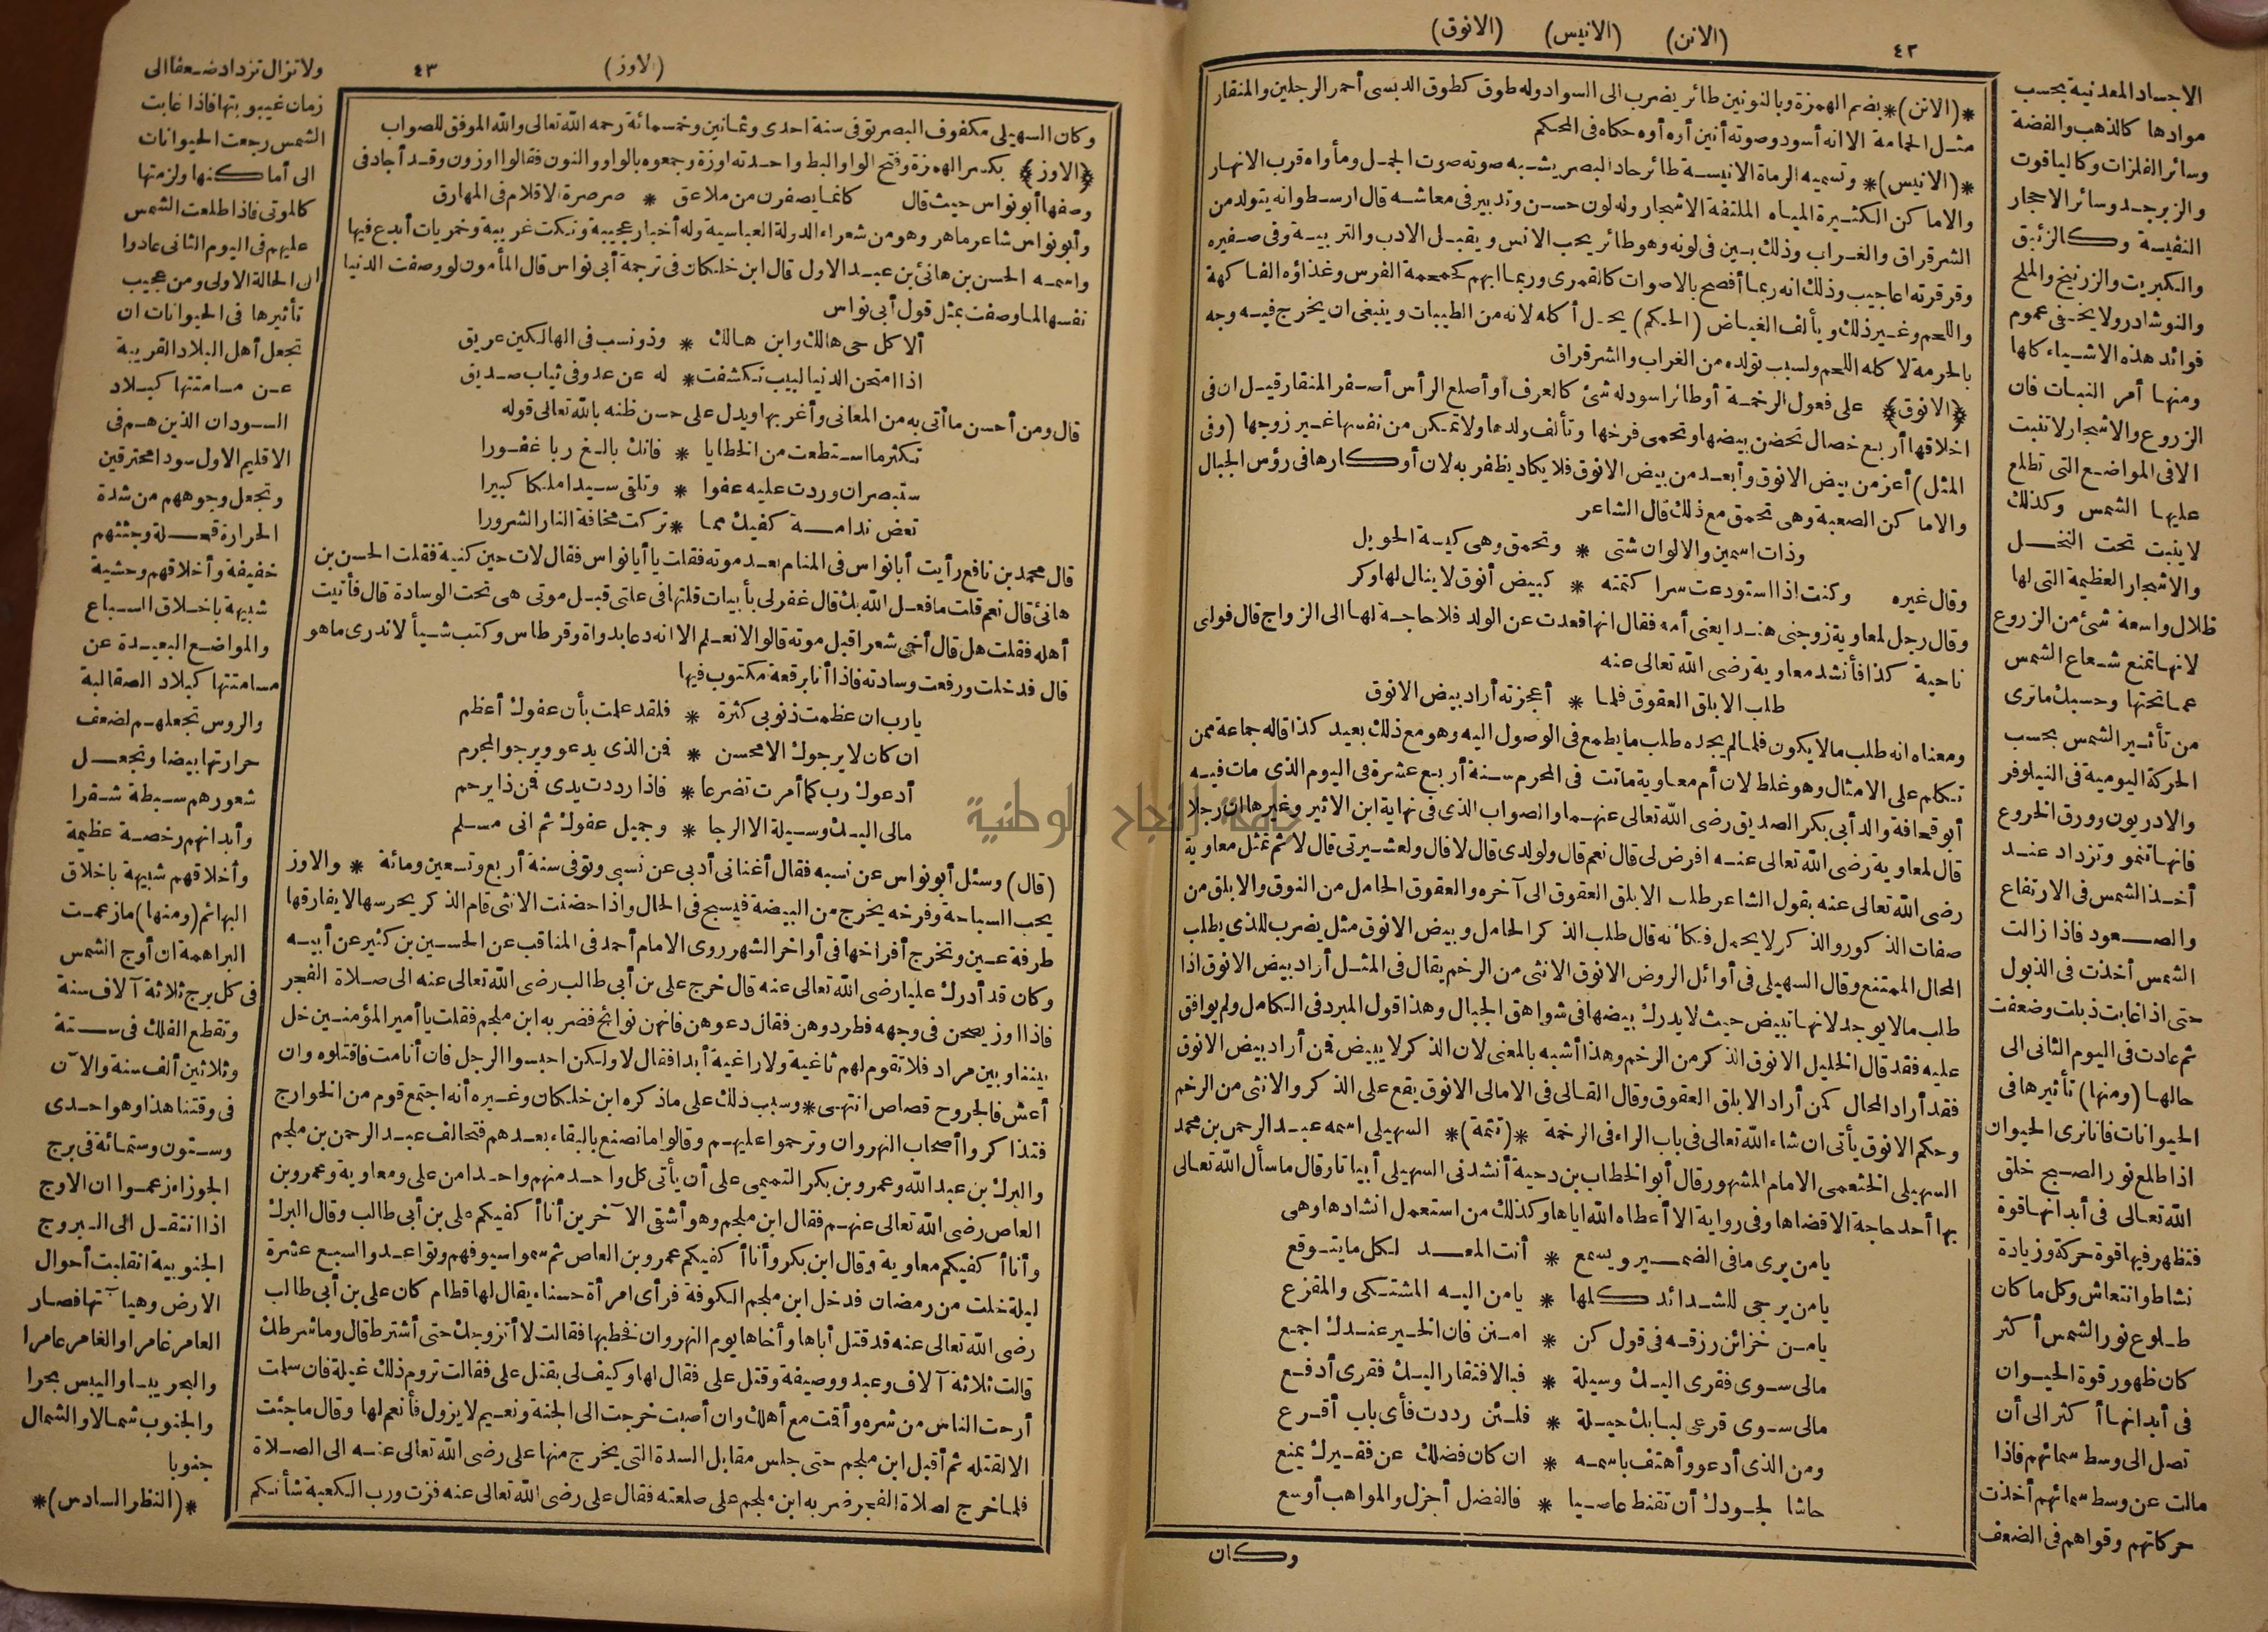 ٤٢
(الانن) (الانيس) (الانوق)
*(الانن)* بضم الهمزة وبالنونين طائر يضرب الى السواد وله طوق كطوق الدبسى أحمر الرجلين والمنقار
مثل الحمامة الا انه أسود وصوته أنين أوه أوه حكاه فى المحكم
*(الانيس)* وتسميه الرماة الانيسة طائر حاد البصر يشبه صوته صوت الجمل ومأواه قرب الانهار
والاماكن الكثيرة المياه الملتفة الاشجار وله لون حسن وتدبير فى معاشه قال ارسطو انه يتولد من
الشرقراق والغراب وذلك بين فى لونه وهو طائر يحب الانس ويقبل الادب والتربية وفى صفيره
وقرقرته اعاجيب وذلك انه ربما أفصح بالاصوات كالقمرى وربما ابهم كحمحمة الفرس وغذاؤه الفاكهة
واللحم وغير ذلك ويألف الغياض (الحكم) يحل أكله لانه من الطيبات وينبغى ان يخرج فيه وجه
بالحرمة لاكله اللحم ولسبب تولده من الغراب والشرقراق
﴿الانوق﴾ على فعول الرخمة أو طائر اسود له شئ كالعرف أو أصلع الرأس أصفر المنقار قيل ان فى
اخلاقها أربع خصال تحضن بيضها وتحمى فرخها وتألف ولدها ولا تمكن من نفسها غير زوجها (وفى
المثل) أعز من بيض الانوق وأبعد من بيض الانوق فلا يكاد يظفر به لان أوكارها فى رؤس الجبال
والاماكن الصعبة وهى تحمق مع ذلك قال الشاعر
وذات اسمين والالوان شتى * وتحمق وهى كيسة الحويل
وقال غيره وكنت اذا استودعت سرا كتمته * كبيض أنوق لا ينال لها وكر
وقال رجل لمعاوية زوجنى هندا يعنى أمه فقال انها قعدت عن الولد فلا حاجة لها الى الزواج قال فولنى
ناحية كذا فأنشد معاوية رضى الله تعالى عنه
طلب الابلق العقوق فلما * أعجزته أراد بيض الانوق
ومعناه انه طلب مالا يكون فلما لم يجده طلب ما يطمع فى الوصول اليه وهو مع ذلك بعيد كذا قاله جماعة ممن
تكلم على الامثال وهو غلط لان أم معاوية ماتت فى المحرم سنة أربع عشرة فى اليوم الذى مات فيه
أبو قحافة والد أبى بكر الصديق رضى الله تعالى عنهما والصواب الذى فى نهاية ابن الاثير وغيرها ان رجلا
قال لمعاوية رضى الله تعالى عنه افرض لى قال نعم قال ولولدى قال لا قال ولعشيرتى قال لا ثم تمثل معاوية
رضى الله تعالى عنه بقول الشاعر طلب الابلق العقوق الى آخره والعقوق الحامل من النوق والابلق من
صفات الذكور والذكر لا يحمل فكأنه قال طلب الذكر الحامل وبيض الانوق مثل يضرب للذى يطلب
المحال الممتنع وقال السهيلى فى أوائل الروض الانوق الانثى من الرخم يقال فى المثل أراد بيض الانوق اذا
طلب مالا يوجد لانها تبيض حيث لا يدرك بيضها فى شواهق الجبال وهذا قول المبرد فى الكامل ولم يوافق
عليه فقد قال الخليل الانوق الذكر من الرخم وهذا أشبه بالمعنى لان الذكر لا يبيض فمن أراد بيض الانوق
فقد أراد المحال كمن أراد الابلق العقوق وقال القالى فى الامالى الانوق يقع على الذكر والانثى من الرخم
وحكم الانوق يأتى ان شاء الله تعالى فى باب الراء فى الرخمة *(تتمة)* السهيلى اسمه عبد الرحمن بن محمد
السهيلى الخثعمى الامام المشهور قال أبو الخطاب بن دحية أنشدنى السهيلى أبياتا وقال ما سأل الله تعالى
بها أحد حاجة الا قضاها وفى رواية الا أعطاه الله اياها وكذلك من استعمل انشادها وهى
يا من يرى ما فى الضمير ويسمع * أنت المعد لكل ما يتوقع
يا من يرجى للشدائد كلها * يا من اليه المشتكى والمفزع
يا من خزائن رزقه فى قول كن * امنن فان الخير عندك اجمع
مالى سوى فقرى اليك وسيلة * فبالافتقار اليك فقرى أدفع
مالى سوى قرعى لبابك حيلة * فلئن رددت فأى باب أقرع
ومن الذى أدعو وأهتف باسمه * ان كان فضلك عن فقيرك يمنع
حاشا لجودك أن تقنط عاصيا * فالفضل أجزل والمواهب أوسع
وكان
الاجساد المعدنية بحسب
موادها كالذهب والفضة
وسائر الفلزات وكالياقوت
والزبرجد وسائر الاحجار
النفيسة وكالزئبق
والكبريت والزرنيخ والملح
والنوشادر ولا يخفى عموم
فوائد هذه الاشياء كلها
ومنها أمر النبات فان
الزروع والاشجار لا تنبت
الا فى المواضع التى تطلع
عليها الشمس وكذلك
لا ينبت تحت النخل
والاشجار العظيمة التى لها
ظلال واسعة شئ من الزروع
لانها تمنع شعاع الشمس
عما تحتها وحسبك ما ترى
من تأثير الشمس بحسب
الحركة اليومية فى النيلوفر
والاذريون وورق الخروع
فانها تنمو وتزداد عند
أخذ الشمس فى الارتفاع
والصعود فاذا زالت
الشمس أخذت فى الذبول
حتى اذا غابت ذبلت وضعفت
ثم عادت فى اليوم الثانى الى
حالها (ومنها) تأثيرها فى
الحيوانات فانا نرى الحيوان
اذا طلع نور الصبح خلق
الله تعالى فى أبدانها قوة
فتظهر فيها قوة حركة وزيادة
نشاط وانتعاش وكل ما كان
طلوع نور الشمس أكثر
كان ظهور قوة الحيوان
فى أبدانها أكثر الى أن
تصل الى وسط سمائهم فاذا
مالت عن وسط سمائهم أخذت
حركاتهم وقواهم فى الضعف
(الاوز)
٤٣
وكان السهيلى مكفوف البصر توفى سنة احدى وثمانين وخمسمائة رحمه الله تعالى والله الموفق للصواب
﴿الاوز﴾ بكسر الهمزة وفتح الواو البط واحدته اوزة وجمعوه بالواو والنون فقالوا اوزون وقد أجاد فى
وصفها أبو نواس حيث قال كانما يصفرن من ملاعق * صرصرة الاقلام فى المهارق
وأبو نواس شاعر ماهر وهو من شعراء الدولة العباسية وله أخبار عجيبة ونكت غريبة وخمريات أبدع فيها
واسمه الحسن بن هانئ بن عبد الاول قال ابن خلكان فى ترجمة أبى نواس قال المأمون لو وصفت الدنيا
نفسها لما وصفت بمثل قول أبى نواس
ألا كل حى هالك وابن هالك * وذو نسب فى الهالكين عريق
اذا امتحن الدنيا لبيب تكشفت * له عن عدو فى ثياب صديق
قال ومن أحسن ما أتى به من المعانى وأغربها ويدل على حسن ظنه بالله تعالى قوله
تكثر ما استطعت من الخطايا * فانك بالغ ربا غفورا
ستبصر ان وردت عليه عفوا * وتلقى سيدا ملكا كبيرا
تعض ندامة كفيك مما * تركت مخافة النار الشرورا
قال محمد بن نافع رأيت أبا نواس فى المنام بعد موته فقلت يا أبا نواس فقال لات حين كنية فقلت الحسن بن
هانئ قال نعم قلت ما فعل الله بك قال غفر لى بأبيات قلتها فى علتى قبل موتى هى تحت الوسادة قال فأتيت
أهله فقلت هل قال أخى شعرا قبل موته قالوا لا نعلم الا انه دعا بدواة وقرطاس وكتب شيأ لا ندرى ما هو
قال فدخلت ورفعت وسادته فاذا أنا برقعة مكتوب فيها
يا رب ان عظمت ذنوبى كثرة * فلقد علمت بأن عفوك أعظم
ان كان لا يرجوك الا محسن * فمن الذى يدعو ويرجو المجرم
أدعوك رب كما أمرت تضرعا * فاذا رددت يدى فمن ذا يرحم
مالى اليك وسيلة الا الرجا * وجميل عفوك ثم انى مسلم
(قال) وسئل أبو نواس عن نسبه فقال أغنانى أدبى عن نسبى وتوفى سنة أربع وتسعين ومائة * والاوز
يحب السباحة وفرخه يخرج من البيضة فيسبح فى الحال واذا حضنت الانثى قام الذكر يحرسها لا يفارقها
طرفة عين وتخرج أفراخها فى أواخر الشهر روى الامام أحمد فى المناقب عن الحسين بن كثير عن أبيه
وكان قد أدرك عليا رضى الله تعالى عنه قال خرج على بن أبى طالب رضى الله تعالى عنه الى صلاة الفجر
فاذا اوز يصحن فى وجهه فطردوهن فقال دعوهن فانهن نوائح فضربه ابن ملجم فقلت يا أمير المؤمنين خل
بيننا وبين مراد فلا تقوم لهم ثاغية ولا راغية أبدا فقال لا ولكن احبسوا الرجل فان أنا مت فاقتلوه وان
أعش فالجروح قصاص انتهى * وسبب ذلك على ما ذكره ابن خلكان وغيره أنه اجتمع قوم من الخوارج
فتذاكروا أصحاب النهروان وترحموا عليهم وقالوا ما نصنع بالبقاء بعدهم فتحالف عبد الرحمن بن ملجم
والبرك بن عبد الله وعمرو بن بكر التميمى على أن يأتى كل واحد منهم واحدا من على ومعاوية وعمرو بن
العاص رضى الله تعالى عنهم فقال ابن ملجم وهو أشقى الآخرين أنا أكفيكم على بن أبى طالب وقال البرك
وأنا أكفيكم معاوية وقال ابن بكر وأنا أكفيكم عمرو بن العاص ثم سموا سيوفهم وتواعدوا لسبع عشرة
ليلة خلت من رمضان فدخل ابن ملجم الكوفة فرأى امرأة حسناء يقال لها قطام كان على بن أبى طالب
رضى الله تعالى عنه قد قتل أباها وأخاها يوم النهروان فخطبها فقالت لا أتزوجك حتى أشترط قال وما شرطك
قالت ثلاثة آلاف وعبد ووصيفة وقتل على فقال لها وكيف لى بقتل على فقالت تروم ذلك غيلة فان سلمت
أرحت الناس من شره وأقمت مع أهلك وان أصبت خرجت الى الجنة ونعيم لا يزول فأنعم لها وقال ما جئت
الا لقتله ثم أقبل ابن ملجم حتى جلس مقابل السدة التى يخرج منها على رضى الله تعالى عنه الى الصلاة
فلما خرج لصلاة الفجر ضربه ابن ملجم على صلعته فقال على رضى الله تعالى عنه فزت ورب الكعبة شأنكم
ولا تزال تزداد ضعفا الى
زمان غيبوبتها فاذا غابت
الشمس رجعت الحيوانات
الى أماكنها ولزمتها
كالموتى فاذا طلعت الشمس
عليهم فى اليوم الثانى عادوا
الى الحالة الاولى ومن عجيب
تأثيرها فى الحيوانات ان
تجعل أهل البلاد القريبة
عن مسامتتها كبلاد
السودان الذين هم فى
الاقليم الاول سودا محترقين
وتجعل وجوههم من شدة
الحرارة قحلة وجثثهم
خفيفة وأخلاقهم وحشية
شبيهة باخلاق السباع
والمواضع البعيدة عن
مسامتتها كبلاد الصقالبة
والروس تجعلهم لضعف
حرارتها بيضا وتجعل
شعورهم سبطة شقرا
وأبدانهم رخصة عظيمة
وأخلاقهم شبيهة باخلاق
البهائم (ومنها) ما زعمت
البراهمة ان أوج الشمس
فى كل برج ثلاثة آلاف سنة
وتقطع الفلك فى ستة
وثلاثين ألف سنة والآن
فى وقتنا هذا وهو احدى
وستون وستمائة فى برج
الجوزاء زعموا ان الاوج
اذا انتقل الى البروج
الجنوبية انقلبت أحوال
الارض وهيآتها فصار
العامر غامرا والغامر عامرا
والبحر يبسا واليبس بحرا
والجنوب شمالا والشمال
جنوبا
*(النظر السادس)*
جامعة النجاح الوطنية